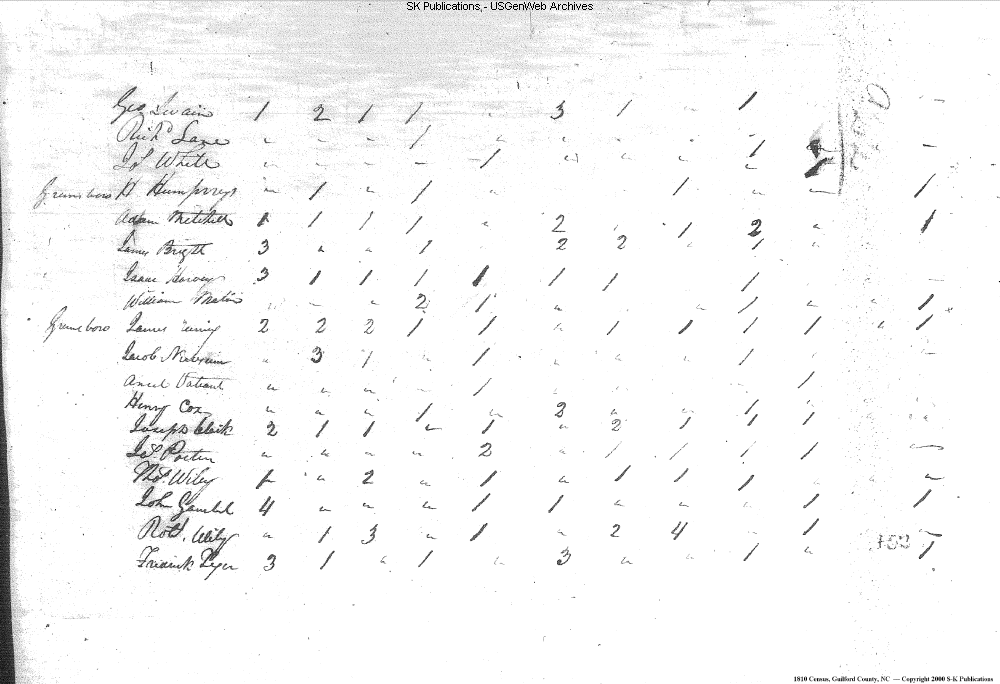 SK Publications, - USGenWeb Archives
Geo Swain 1 2 1 1 " 3 1 " 1
Richd Lane " " " 1 " " " " 1
Js White " " " " 1 " " " " 1
Greensboro H Humphreys " 1 " 1 1 " " 1
Adam Mitchell 1 1 1 1 " 2 1 2 " 1
James 3 " " 1 2 2 " 1 "
Isaac Harvey 3 1 1 1 1 1 1 1
William " " " 2 1 " " 1 " " 1
Greensboro James 2 2 2 1 1 " 1 1 1 1 " 1
Jacob " 3 1 " 1 " " " 1 "
" " " " 1 " " 1
Henry Cox " " " 1 " 2 " " 1 "
Joseph Clark 2 1 1 " 1 " 2 1 1 1
Porter " " " " 2 " 1 1 1 1
Thos. Wiley 1 " 2 " 1 " 1 1 1 "
John 4 " " " 1 1 " " " 1 1
Robt. Wiley " 1 3 " 1 " 2 4 " 1
Fredrick 3 1 " 1 " 3 " " 1 "
1810 Census, Guilford County, NC — Copyright 2000 S-K Publications